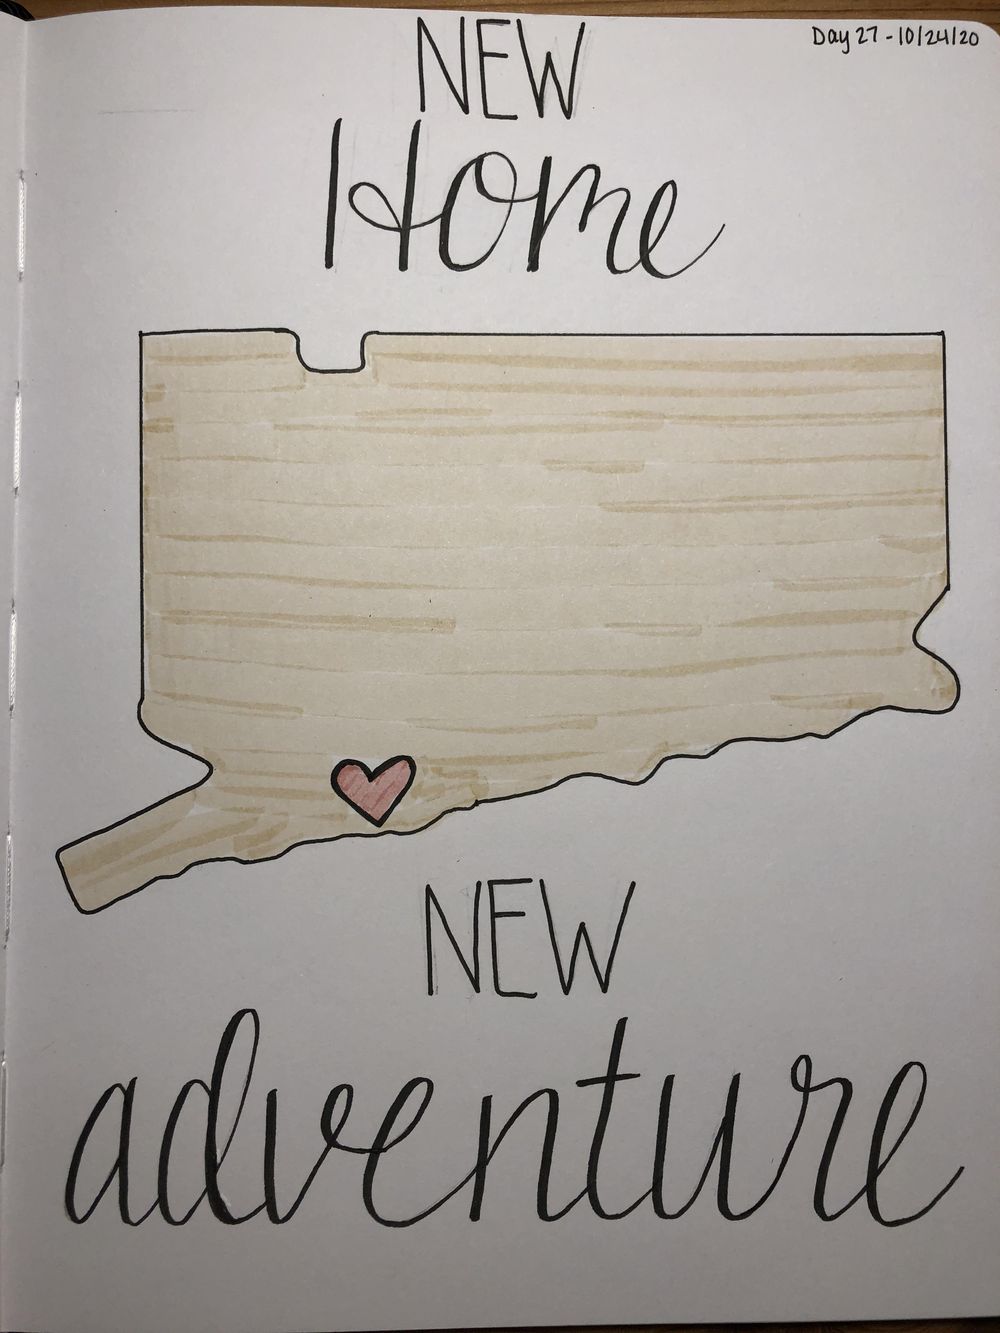 Day 27 - 10/24/20
NEW
Home
NEW
adventure